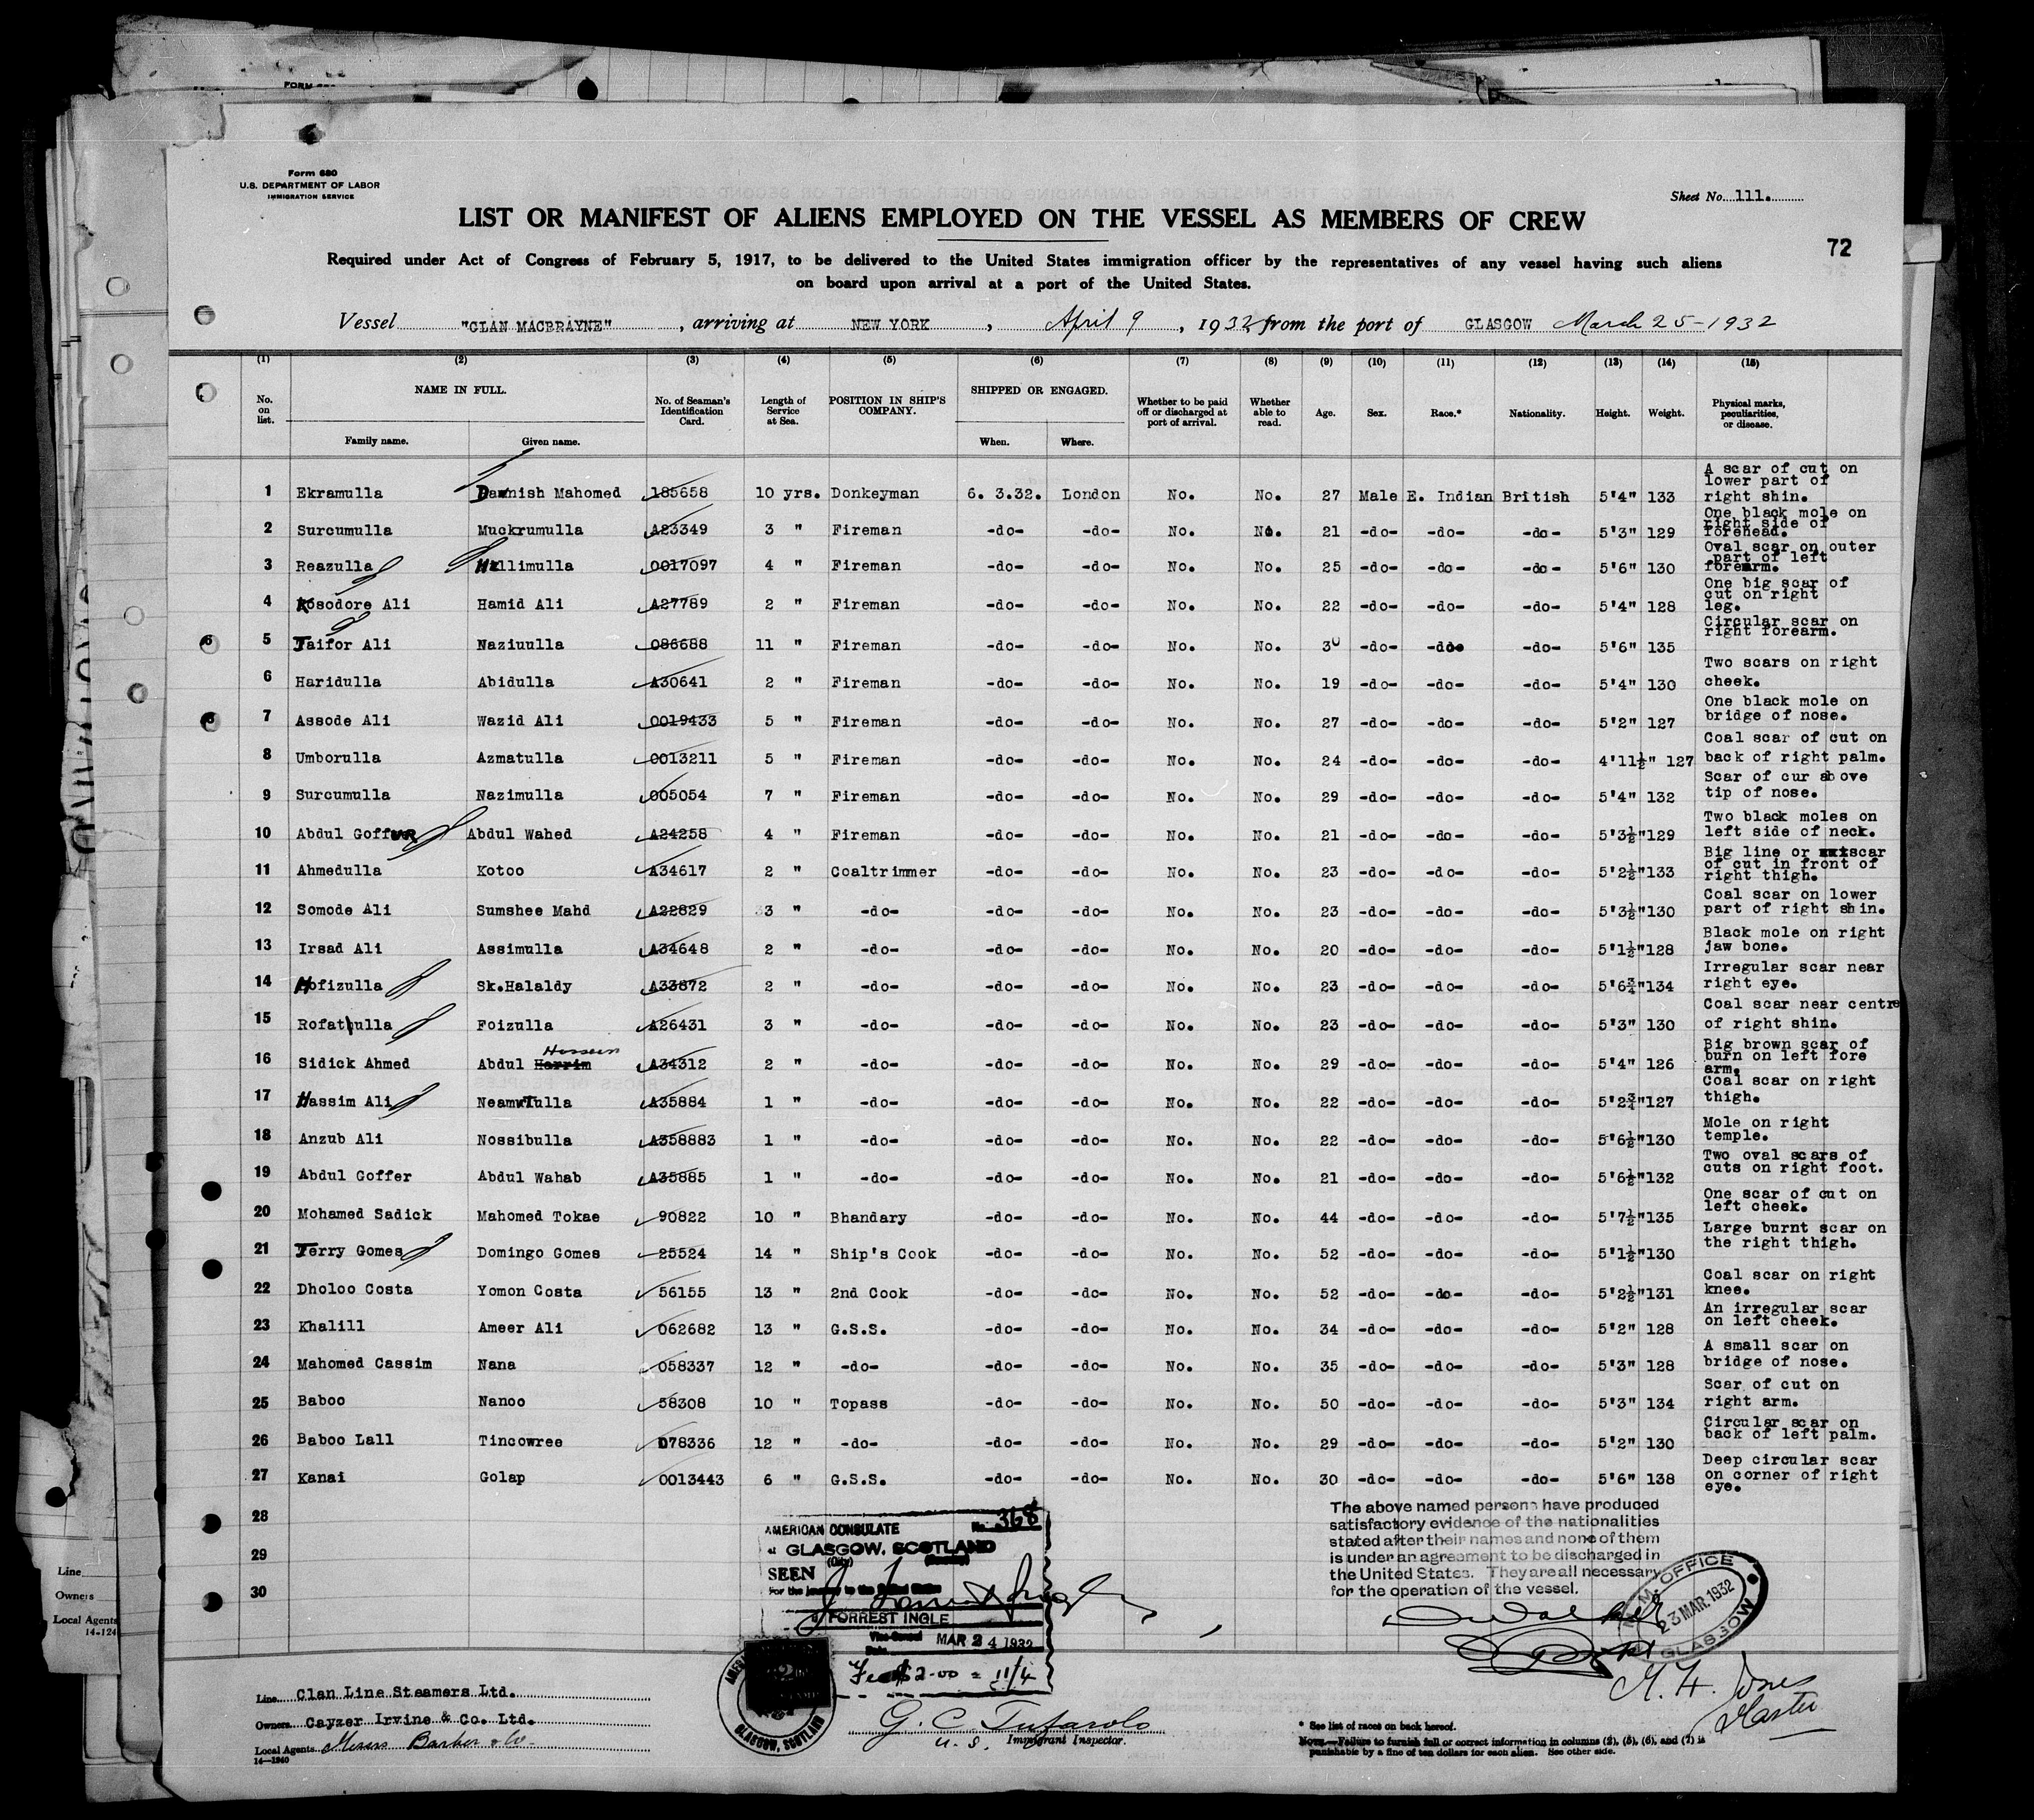 Form 680
U.S. DEPARTMENT OF LABOR
IMMIGRATION SERVICE
Sheet No. 111.
LIST OR MANIFEST OF ALIENS EMPLOYED ON THE VESSEL AS MEMBERS OF CREW
72
Required under Act of Congress of February 5, 1917, to be delivered to the United States immigration officer by the representatives of any vessel having such aliens
on board upon arrival at a port of the United States.
Vessel "CLAN MACBRAYNE", arriving at NEW YORK, April 9, 1932 from the port of GLASGOW March 25-1932
(1) (2) (3) (4) (5) (6) (7) (8) (9) (10) (11) (12) (13) (14) (15)
No. on list. NAME IN FULL. Family name. Given name. No. of Seaman's Identification Card. Length of Service at Sea. POSITION IN SHIP'S COMPANY. SHIPPED OR ENGAGED. When. Where. Whether to be paid off or discharged at port of arrival. Whether able to read. Age. Sex. Race.* Nationality. Height. Weight. Physical marks, peculiarities, or disease.
1 Ekramulla Dawnish Mahomed 185658 10 yrs. Donkeyman 6. 3.32. London No. No. 27 Male E. Indian British 5'4" 133 A scar of cut on lower part of right shin.
2 Surcumulla Muckrumulla A23349 3 " Fireman -do- -do- No. No. 21 -do- -do- -do- 5'3" 129 One black mole on right side of forehead.
3 Reazulla Hallimulla 0017097 4 " Fireman -do- -do- No. No. 25 -do- -do- -do- 5'6" 130 Oval scar on outer part of left forearm.
4 Kosodore Ali Hamid Ali A27789 2 " Fireman -do- -do- No. No. 22 -do- -do- -do- 5'4" 128 One big scar of cut on right leg.
5 Taifor Ali Naziuulla 086688 11 " Fireman -do- -do- No. No. 30 -do- -do- -do- 5'6" 135 Circular scar on right forearm.
6 Haridulla Abidulla A30641 2 " Fireman -do- -do- No. No. 19 -do- -do- -do- 5'4" 130 Two scars on right cheek.
7 Assode Ali Wazid Ali 0019433 5 " Fireman -do- -do- No. No. 27 -do- -do- -do- 5'2" 127 One black mole on bridge of nose.
8 Umborulla Azmatulla 0013211 5 " Fireman -do- -do- No. No. 24 -do- -do- -do- 4'11½" 127 Coal scar of cut on back of right palm.
9 Surcumulla Nazimulla 005054 7 " Fireman -do- -do- No. No. 29 -do- -do- -do- 5'4" 132 Scar of cur above tip of nose.
10 Abdul Goffur Abdul Wahed A24258 4 " Fireman -do- -do- No. No. 21 -do- -do- -do- 5'3½" 129 Two black moles on left side of neck.
11 Ahmedulla Kotoo A34617 2 " Coaltrimmer -do- -do- No. No. 23 -do- -do- -do- 5'2½" 133 Big line or scar of cut in front of right thigh.
12 Somode Ali Sumshee Mahd A22829 3 " -do- -do- -do- No. No. 23 -do- -do- -do- 5'3½" 130 Coal scar on lower part of right shin.
13 Irsad Ali Assimulla A34648 2 " -do- -do- -do- No. No. 20 -do- -do- -do- 5'1½" 128 Black mole on right jaw bone.
14 Hofizulla Sk.Halaldy A33872 2 " -do- -do- -do- No. No. 23 -do- -do- -do- 5'6¾" 134 Irregular scar near right eye.
15 Rofatulla Foizulla A26431 3 " -do- -do- -do- No. No. 23 -do- -do- -do- 5'3" 130 Coal scar near centre of right shin.
16 Sidick Ahmed Abdul Harrim Hossein A34312 2 " -do- -do- -do- No. No. 29 -do- -do- -do- 5'4" 126 Big brown scar of burn on left fore arm.
17 Hassim Ali Neamutulla A35884 1 " -do- -do- -do- No. No. 22 -do- -do- -do- 5'2¾" 127 Coal scar on right thigh.
18 Anzub Ali Nossibulla A358883 1 " -do- -do- -do- No. No. 22 -do- -do- -do- 5'6½" 130 Mole on right temple.
19 Abdul Goffer Abdul Wahab A35885 1 " -do- -do- -do- No. No. 21 -do- -do- -do- 5'6½" 132 Two oval scars of cuts on right foot.
20 Mohamed Sadick Mahomed Tokae 90822 10 " Bhandary -do- -do- No. No. 44 -do- -do- -do- 5'7½" 135 One scar of cut on left cheek.
21 Terry Gomes Domingo Gomes 25524 14 " Ship's Cook -do- -do- No. No. 52 -do- -do- -do- 5'1½" 130 Large burnt scar on the right thigh.
22 Dholoo Costa Yomon Costa 56155 13 " 2nd Cook -do- -do- No. No. 52 -do- -do- -do- 5'2½" 131 Coal scar on right knee.
23 Khalill Ameer Ali 062682 13 " G.S.S. -do- -do- No. No. 34 -do- -do- -do- 5'2" 128 An irregular scar on left cheek.
24 Mahomed Cassim Nana 058337 12 " -do- -do- -do- No. No. 35 -do- -do- -do- 5'3" 128 A small scar on bridge of nose.
25 Baboo Nanoo 58308 10 " Topass -do- -do- No. No. 50 -do- -do- -do- 5'3" 134 Scar of cut on right arm.
26 Baboo Lall Tincowree D78336 12 " -do- -do- -do- No. No. 29 -do- -do- -do- 5'2" 130 Circular scar on back of left palm.
27 Kanai Golap 0013443 6 " G.S.S. -do- -do- No. No. 30 -do- -do- -do- 5'6" 138 Deep circular scar on corner of right eye.
28
29
30
AMERICAN CONSULATE No. 368
at GLASGOW, SCOTLAND
(City) (Country)
SEEN
For the journey to the United States
FORREST INGLE
Vice-Consul
Date MAR 24 1932
Fee $2.00 = 11/4
GLASGOW, SCOTLAND
The above named persons have produced
satisfactory evidence of the nationalities
stated after their names and none of them
is under an agreement to be discharged in
the United States. They are all necessary
for the operation of the vessel.
M.M. OFFICE
23 MAR. 1932
GLASGOW
M. H. Jones
Master
Line Clan Line Steamers Ltd.
Owners Cayzer Irvine & Co. Ltd.
Local Agents Messrs Barber & Co.
14-1240
G. C. Tufarolo
U.S. Immigrant Inspector.
* See list of races on back hereof.
NOTE.—Failure to furnish full or correct information in columns (2), (5), (6), and (7) is
punishable by a fine of ten dollars for each alien. See other side.
Line
Owners
Local Agents
14-124